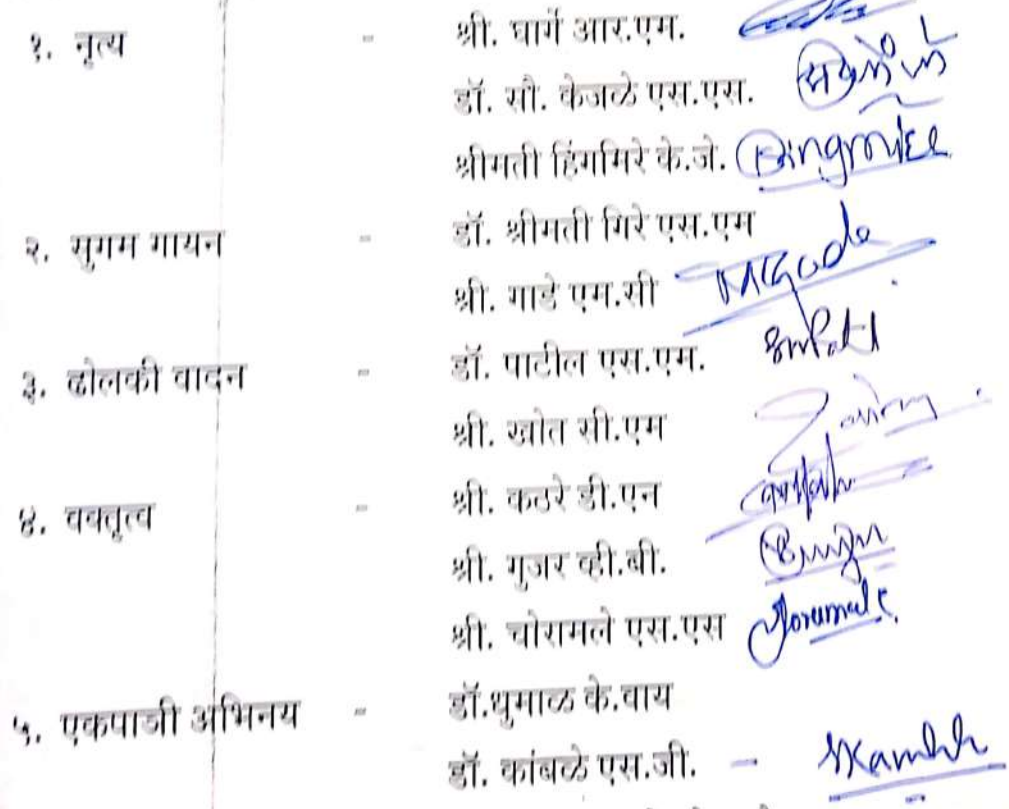 १. नृत्य - श्री. घार्गे आर.एम.
डॉ. सौ. केजळे एस.एस.
श्रीमती हिंगमिरे के.जे.
२. सुगम गायन - डॉ. श्रीमती गिरे एस.एम
श्री. गाडे एम.सी MGade
३. ढोलकी वादन - डॉ. पाटील एस.एम.
श्री. खोत सी.एम
४. वक्तृत्व - श्री. कठरे डी.एन
श्री. गुजर व्ही.बी.
श्री. चोरामले एस.एस
५. एकपाञी अभिनय - डॉ.धुमाळ के.वाय
डॉ. कांबळे एस.जी. -